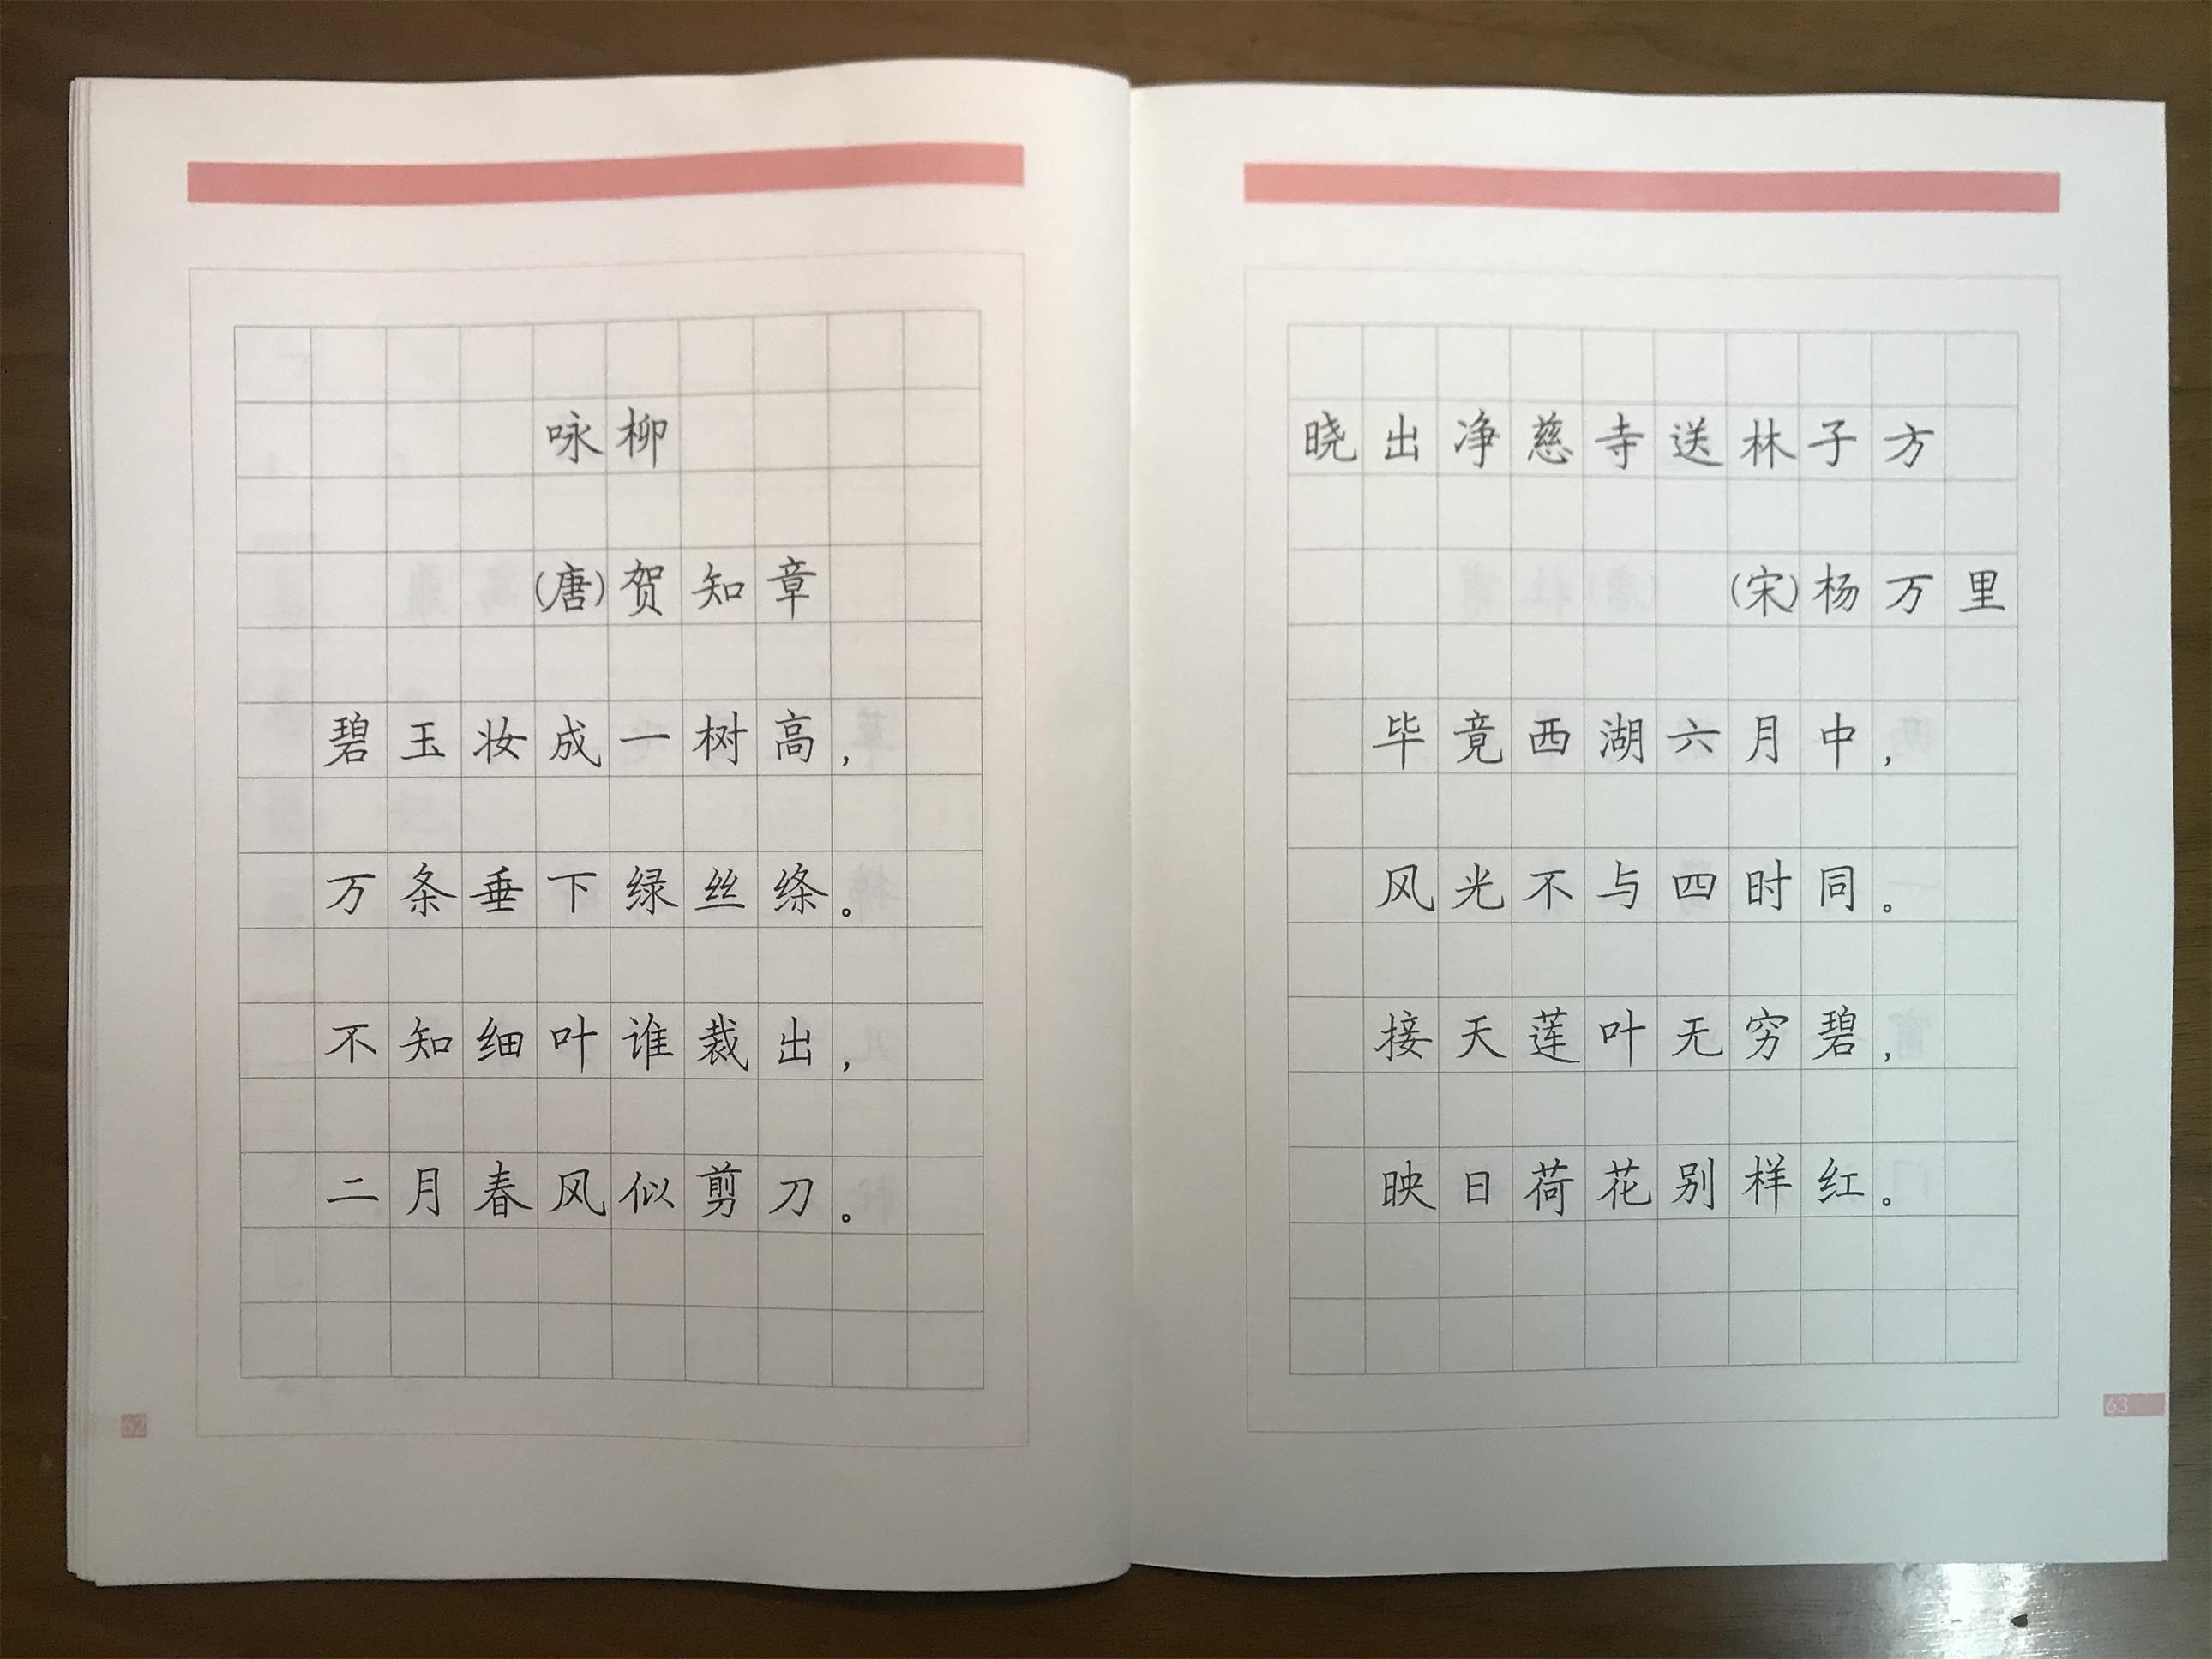 咏柳
(唐)贺知章
碧玉妆成一树高，
万条垂下绿丝绦。
不知细叶谁裁出，
二月春风似剪刀。
62
晓出净慈寺送林子方
(宋)杨万里
毕竟西湖六月中，
风光不与四时同。
接天莲叶无穷碧，
映日荷花别样红。
63